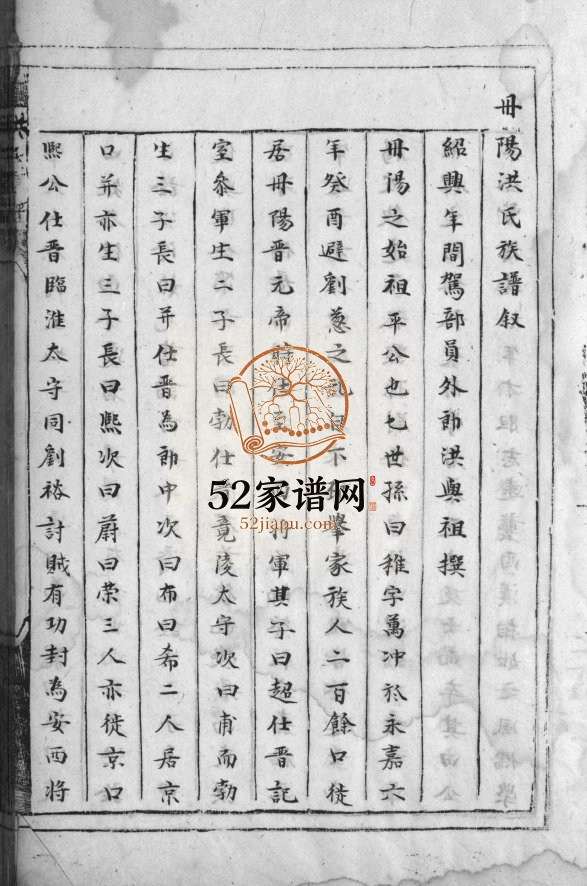 丹陽洪氏族譜叙
紹興年間駕部員外郎洪興祖撰
丹陽之始祖平公也七世孫曰稚字萬冲於永嘉六
年癸酉避劉蔥之亂自下 舉家族人二百餘口徙
居丹陽晋元帝時仕 安 將軍其子曰超仕晋記
室叅軍生二子長曰勃仕 竟陵太守次曰甫而勃
生三子長曰并仕晋為郎中次曰布曰希二人居京
口并亦生三子長曰熙次曰蔚曰荣三人亦徙京口
熙公仕晋臨淮太守同劉裕討賊有功封為安西將
52家谱网
52jiapu.com